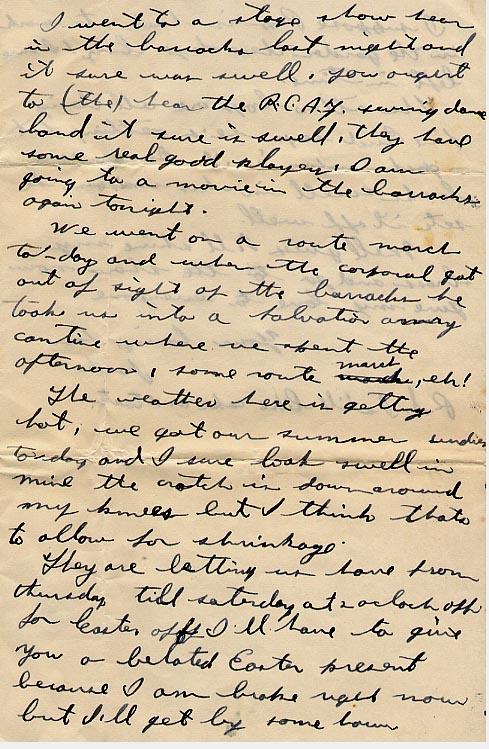 I went to a stage show hear
in the barracks last night and
it sure was swell. you ought
to (the) hear the R.C.A.F. swing dance
band it sure is swell, they have
some real good players. I am
going to a movie in the barracks
again tonight.
We went on a route march
to-day and when the corporal got
out of sight of the barracks he
took us into a Salvation army
cantine where we spent the
afternoon, some route march, eh!
The weather here is getting
hot, we got our summer undies
today and I sure look swell in
mine the crotch is down around
my knees but I think thats
to allow for shrinkage.
They are letting us have from
thursday till saturday at 2 oclock off
for Easter I'll have to give
you a belated Easter present
because I am broke right now
but I'll get by some how